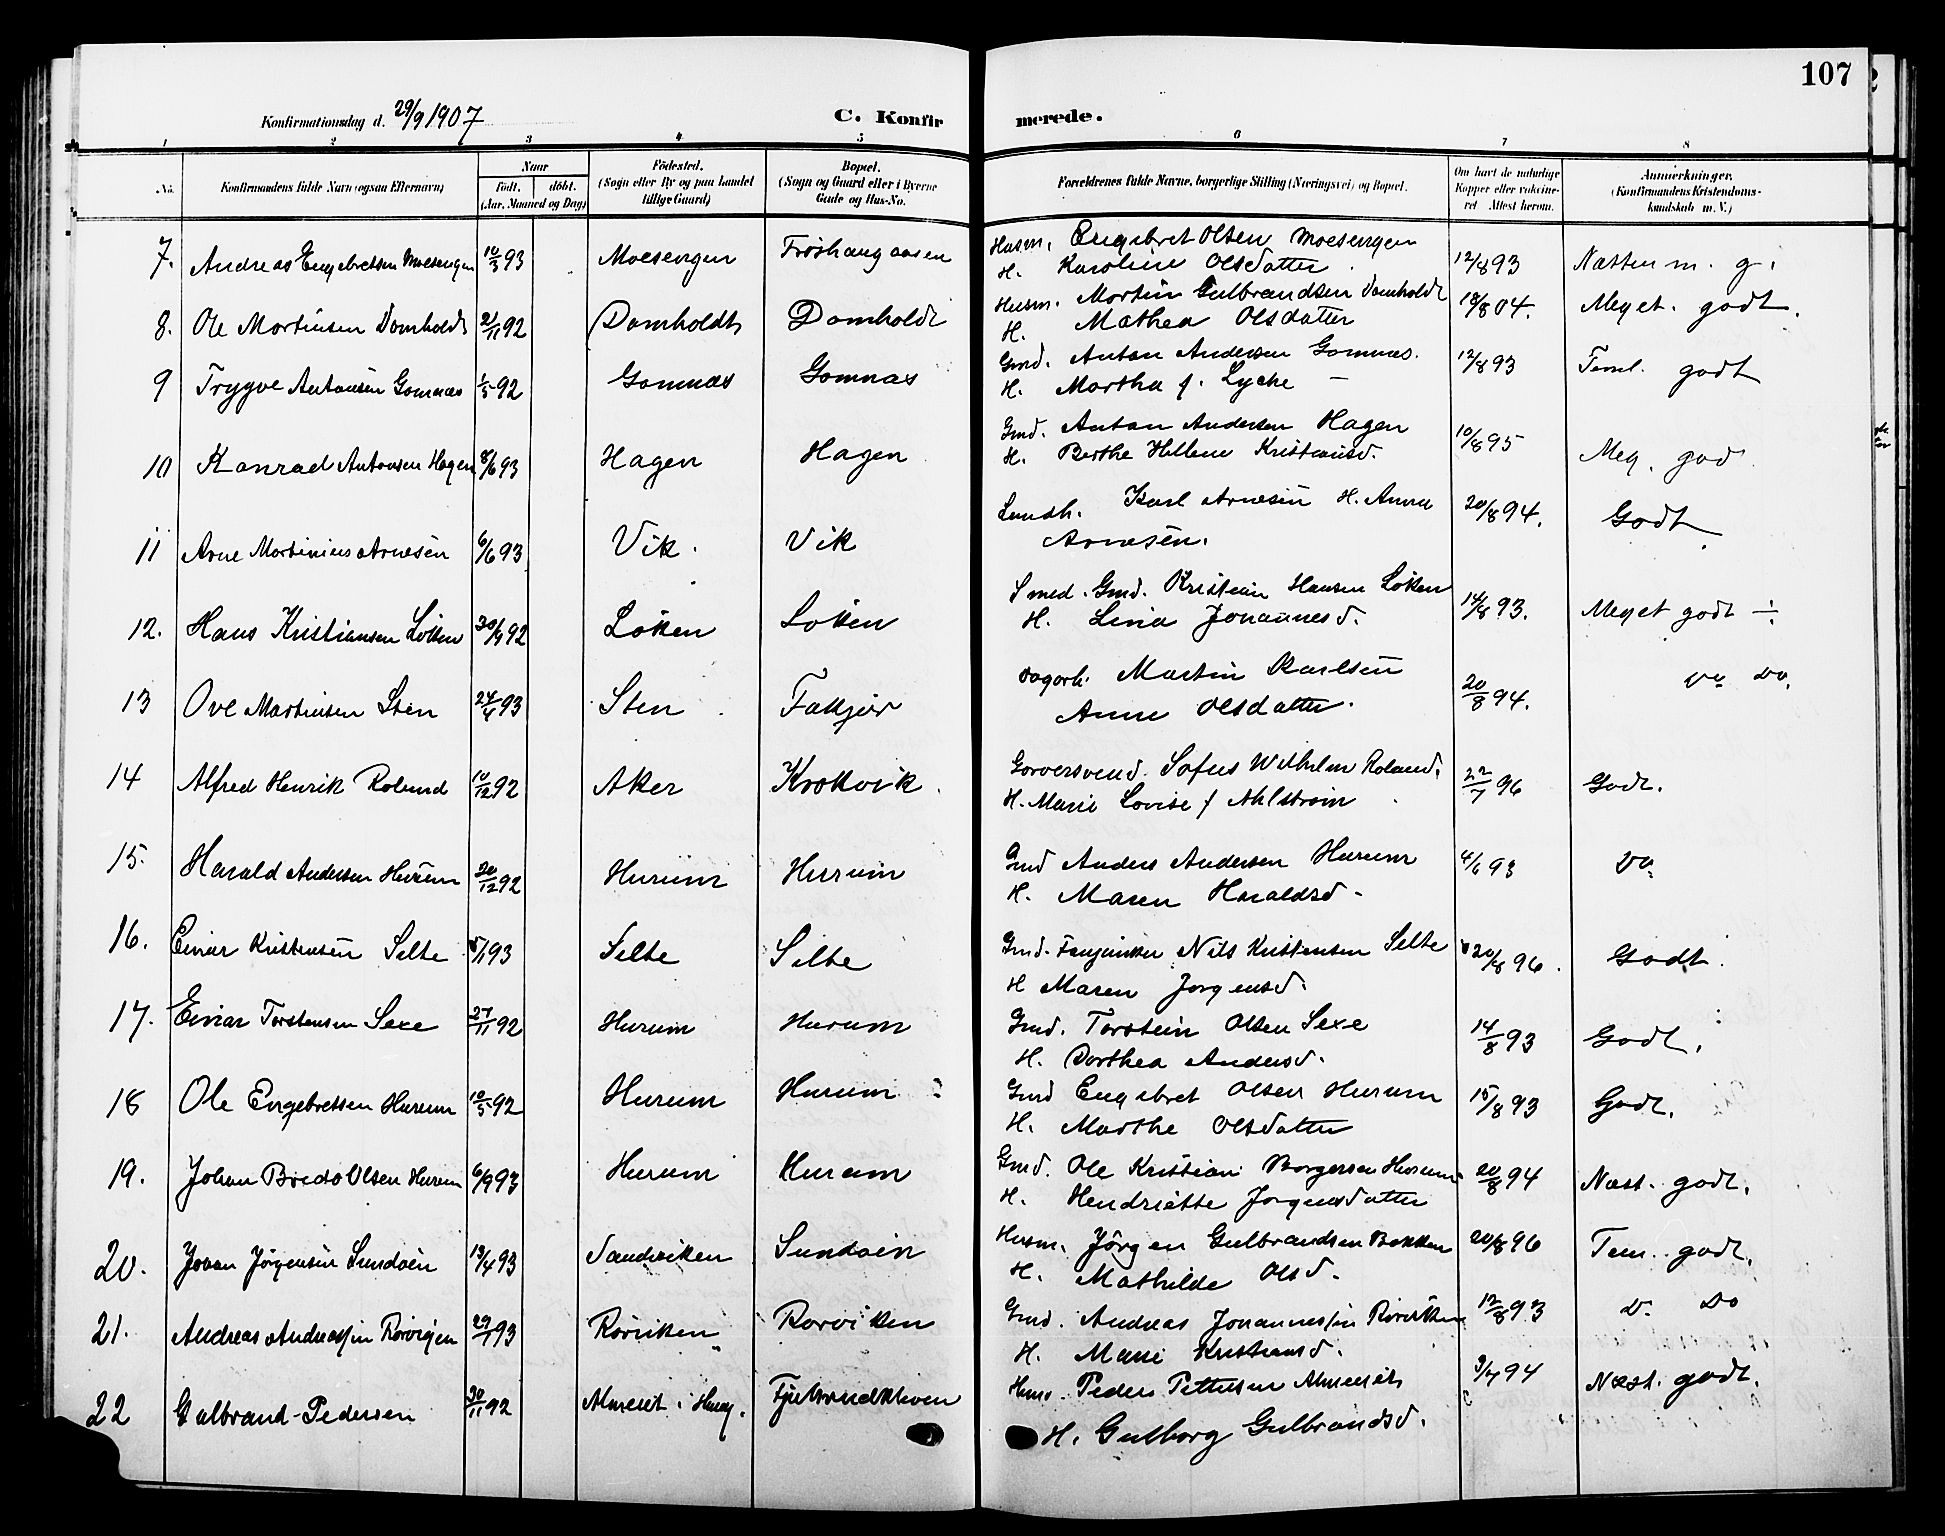 107
Konfirmationsdag d. 29/9 1907
C. Konfir merede.
1 2 3 4 5 6 7 8
No. Konfirmandens fulde Navn (ogsaa Efternavn) Naar født. døbt. (Aar, Maaned og Dag) Fødested. (Sogn eller By og paa Landet tillige Gaard) Bopæl. (Sogn og Gaard eller i Byerne Gade og Hus-No. Forældrenes fulde Navne, borgerlige Stilling (Næringsvei) og Bopæl. Om havt de naturlige Kopper eller vaksineret Attest herom. Anmerkninger. (Konfirmandens Kristendomskundskab m. V.)
7. Andreas Engebretsen Moesengen 10/3 93 Moesengen Frøshaugaasen Husm. Engebret Olsen Moesengen 12/8 93 Næsten m. g.
H. Karoline Olsdatter
8. Ole Martinsen Domholdt 21/11 92 Domholdt Domholdt Husm. Martin Gulbrandsen Domholdt 18/8 04. Meget godt.
H. Mathea Olsdatter
9 Trygve Antonsen Gomnæs 1/5 92 Gomnæs Gomnæs Gmd. Anton Andersen Gomnæs. 12/8 93 Teml. godt
H. Martha f. Lyche
10 Konrad Antonsen Hagen 8/6 93 Hagen Hagen Gmd. Anton Andersen Hagen 10/8 95 Meg. god
H. Berthe Hellene Kristiansd.
11 Arne Martinius Arnesen 6/6 93 Vik. Vik Landh. Karl Arnesen H. Anna 20/8 94. Godt
Arnesen.
12. Hans Kristiansen Løken 30/9 92 Løken Løken Smed. Gmd. Kristian Hansen Løken 14/8 93. Meget godt ÷
H. Lina Johannesd.
13 Ove Martinsen Sten 24/4 93 Sten Dagarb. Martin Karlsen 20/8 94. Do Do.
Anne Olsdatter.
14 Alfred Henrik Roland 10/12 92 Aker Krokvik Garversvend. Sofus Wilhelm Roland. 22/7 96 Godt.
H. Marie Lovise f Ahlstrøm
15. Harald Andersen Hurum 20/12 92 Hurum Hurum Gmd Anders Andersen Hurum 4/6 93 Do
H. Maren Haraldsd.
16. Einar Kristensen Selte 5/1 93 Selte Selte Gmd. Nils Kristensen Selte 20/8 96. Godt.
H Maren Jørgensd.
17. Einar Torstensen Sexe 27/11 92 Hurum Hurum Gmd. Torstein Olsen Sexe 14/8 93 Godt.
H. Dorthea Andersd.
18 Ole Engebretsen Hurum 10/5 92 Hurum Hurum Gmd Engebret Olsen Hurum 15/8 93 Godt.
H. Marthe Olsdatter
19. Johan Bredo Olsen Hurum 6/9 93 Hurum Hurum Gmd. Ole Kristian Borgersen Hurum 20/8 94 Næst. godt.
H. Hendriette Jørgensdatter
20. Johan Jørgensen Sundøen 13/4 93 Sandviken Sundøen Husm. Jørgen Gulbrandsen Bakken 20/8 96 Tem. godt.
H. Mathilde Olsd.
21. Andreas Andreassen Rørvigen 29/1 93 Rørviken Rørviken Gmd. Andreas Johannessen Rørviken 12/8 93 D. Do
H. Marie Kristiansd.
22 Gulbrand Pedersen 30/11 92 Almenit Husm. Peder Pettersen Almenit 3/7 94 Næst. godt.
H. Gulborg Gulbrandsd.